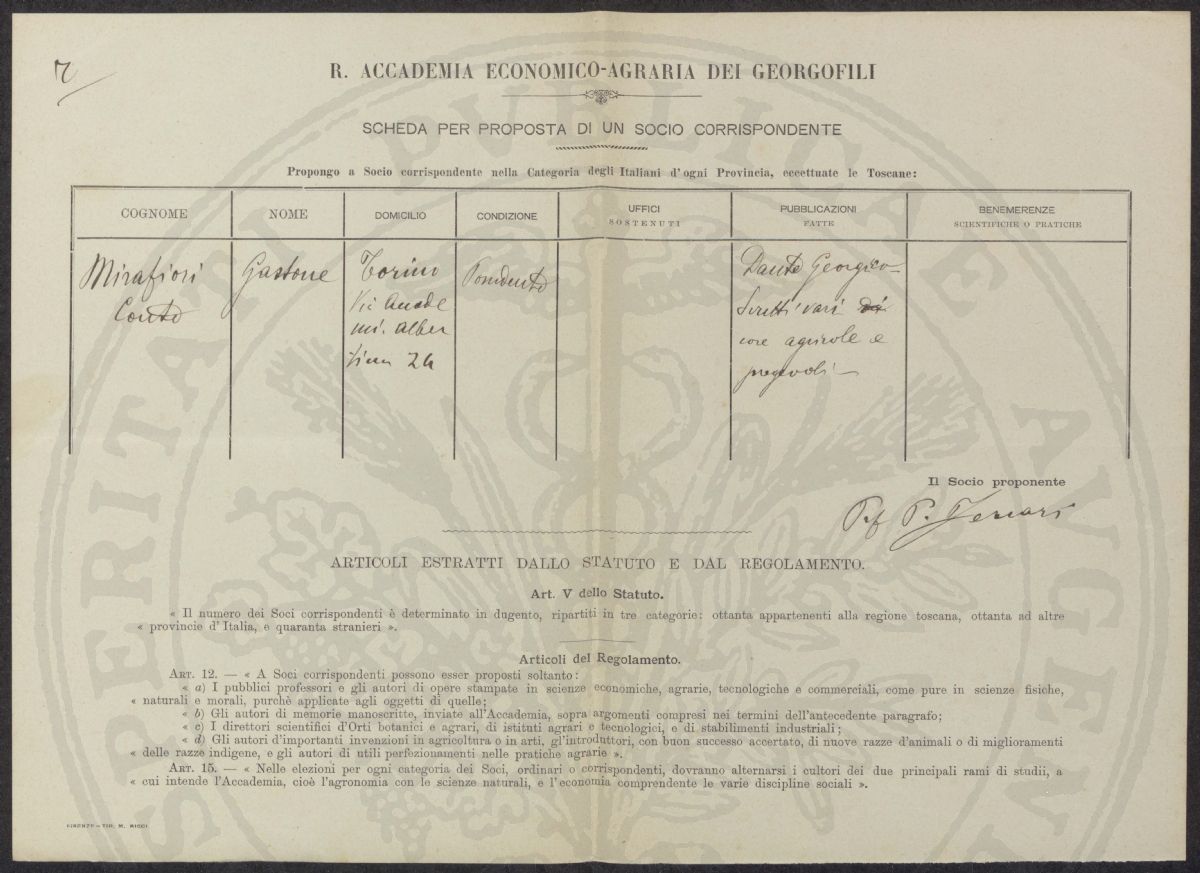 R. ACCADEMIA ECONOMICO-AGRARIA DEI GEORGOFILI
SCHEDA PER PROPOSTA DI UN SOCIO CORRISPONDENTE
Propongo a Socio corrispondente nella Categoria degli Italiani d'ogni Provincia, eccettuate le Toscane:
COGNOME
NOME
DOMICILIO
CONDIZIONE
UFFICI
SOSTENUTI
PUBBLICAZIONI
FATTE
BENEMERENZE
SCIENTIFICHE O PRATICHE
Mirafiori
Conte
Gastone
Torino
Via Accade
mi. Alber
tina
Possidente
Dante Georgico
Scritti vari di
cose agricole e
pregevoli
Il Socio proponente
Prof P. Ferrari
ARTICOLI ESTRATTI DALLO STATUTO E DAL REGOLAMENTO.
Art. V dello Statuto.
« Il numero dei Soci corrispondenti è determinato in dugento, ripartiti in tre categorie: ottanta appartenenti alla regione toscana, ottanta ad altre
« provincie d'Italia, e quaranta stranieri ».
Articoli del Regolamento.
ART. 12. — « A Soci corrispondenti possono esser proposti soltanto:
« a) I pubblici professori e gli autori di opere stampate in scienze economiche, agrarie, tecnologiche e commerciali, come pure in scienze fisiche,
« naturali e morali, purchè applicate agli oggetti di quelle;
« b) Gli autori di memorie manoscritte, inviate all'Accademia, sopra argomenti compresi nei termini dell'antecedente paragrafo;
« c) I direttori scientifici d'Orti botanici e agrari, di istituti agrari e tecnologici, e di stabilimenti industriali;
« d) Gli autori d'importanti invenzioni in agricoltura o in arti, gl'introduttori, con buon successo accertato, di nuove razze d'animali o di miglioramenti
« delle razze indigene, e gli autori di utili perfezionamenti nelle pratiche agrarie ».
ART. 15. — « Nelle elezioni per ogni categoria dei Soci, ordinari o corrispondenti, dovranno alternarsi i cultori dei due principali rami di studii, a
« cui intende l'Accademia, cioè l'agronomia con le scienze naturali, e l'economia comprendente le varie discipline sociali ».
FIRENZE – TIP. M. RICCI
PROSPERITATI PVBLICAE AVGENDAE